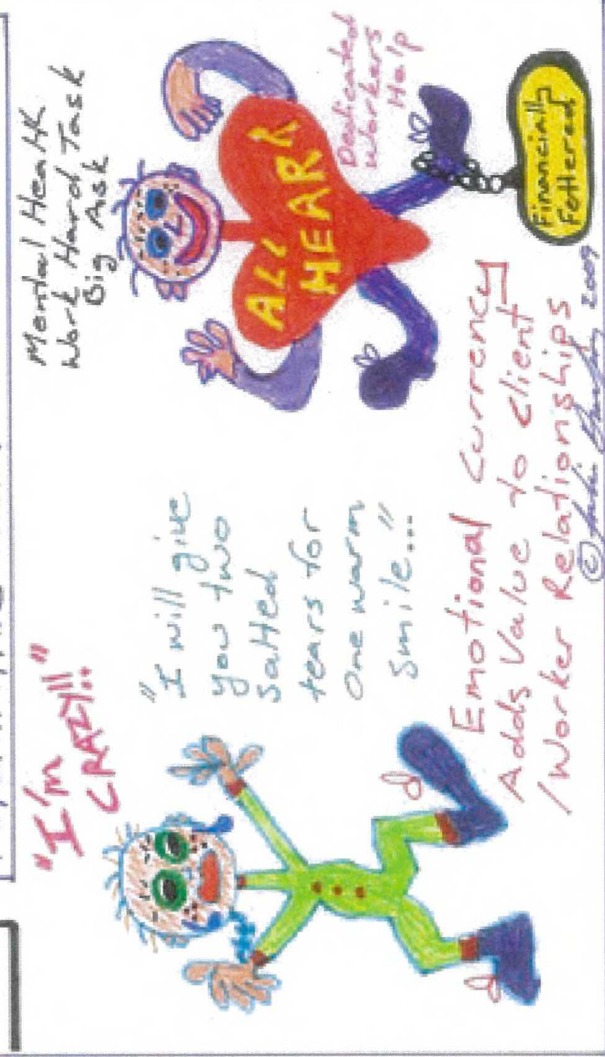 "I'm
CRAZY!!"
"I will give
you two
salted
tears for
One warm
smile..."
Mental Health
Work Hard Task
Big Ask
ALL
HEART
Dedicated
Workers
Help
Financially
Fettered
Emotional Currency
Adds Value to Client
/Worker Relationships
© 2009